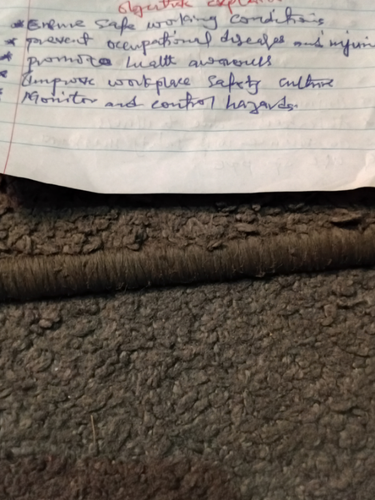 objective explai
* Ensure Safe working conditions
* prevent occupational diseases and injuri
* promote health awareness
* Improve workplace Safety culture
* Monitor and control hazards.